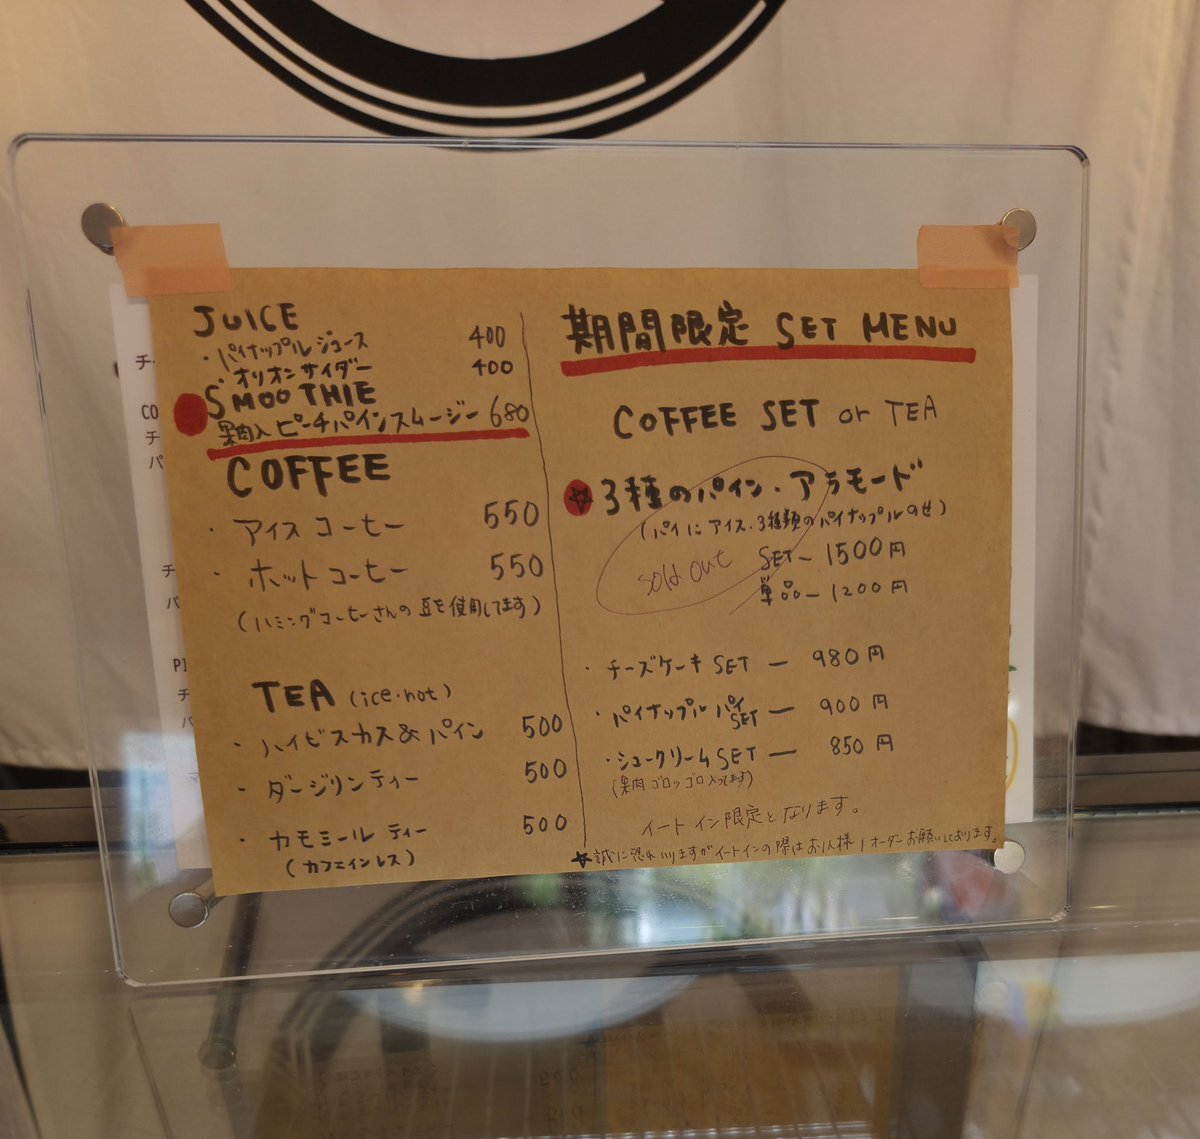 JUICE
・パイナップルジュース 400
・オリオンサイダー 400
SMOOTHIE
果肉入ピーチパインスムージー 680
COFFEE
・アイスコーヒー 550
・ホットコーヒー 550
(ハミングコーヒーさんの豆を使用してます)
TEA (ice・hot)
・ハイビスカス&パイン 500
・ダージリンティー 500
・カモミールティー 500
(カフェインレス)
期間限定 SET MENU
COFFEE SET or TEA
☆3種のパイン・アラモード
(パイにアイス・3種類のパイナップルのせ)
sold out
SET― 1500円
単品― 1200円
・チーズケーキ SET ― 980円
・パイナップルパイ SET ― 900円
・シュークリーム SET ― 850円
(果肉ゴロッゴロ入ってます)
イートイン限定となります。
★誠に恐れいりますがイートインの際はお1人様1オーダーお願いしております。
チ
CO
チ
パ
チ
パ
PI
チ
パ